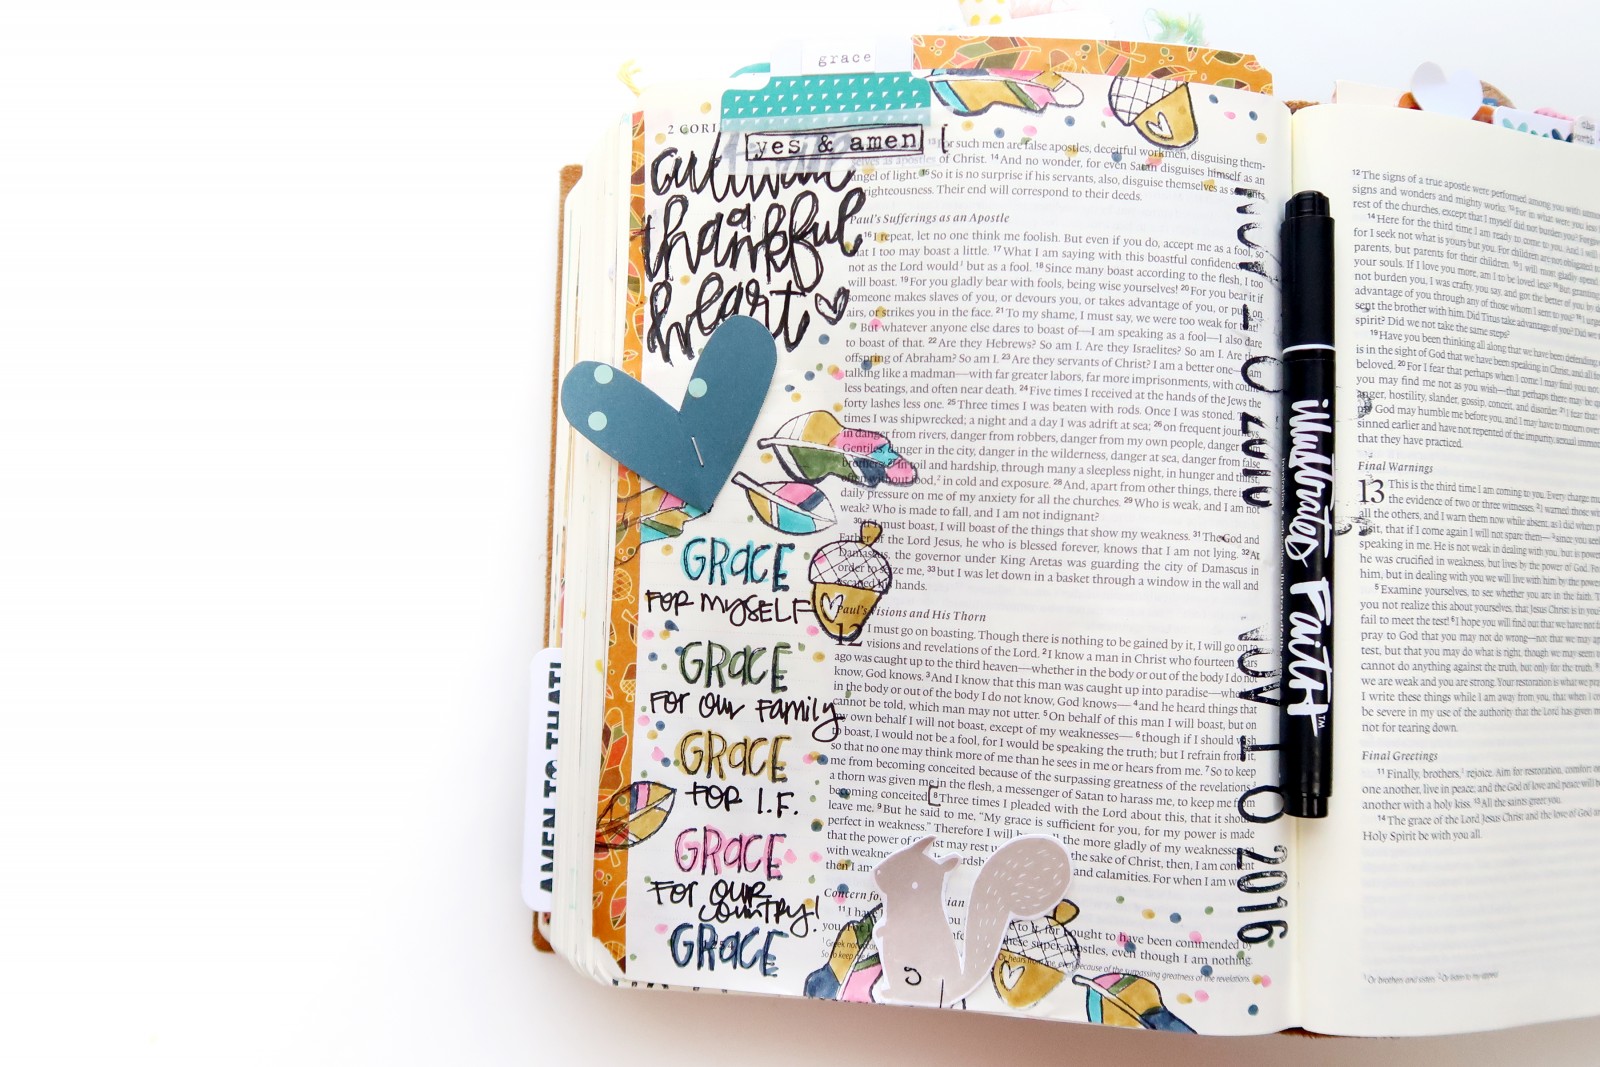 grace
2 CORI
yes & amen
cultivate
a
thankful
heart
GRACE
FOR MYSELF
GRACE
FOR OUR FAMILY
GRACE
FOR I.F.
GRACE
FOR OUR
COUNTRY!
GRACE
AMEN TO THAT!
13 For such men are false apostles, deceitful workmen, disguising them-
selves as apostles of Christ. 14 And no wonder, for even Satan disguises himself as an
angel of light. 15 So it is no surprise if his servants, also, disguise themselves as servants
righteousness. Their end will correspond to their deeds.
Paul's Sufferings as an Apostle
16 I repeat, let no one think me foolish. But even if you do, accept me as a fool, so
that I too may boast a little. 17 What I am saying with this boastful confidence,
not as the Lord would but as a fool. 18 Since many boast according to the flesh, I too
will boast. 19 For you gladly bear with fools, being wise yourselves! 20 For you bear it if
someone makes slaves of you, or devours you, or takes advantage of you, or puts on
airs, or strikes you in the face. 21 To my shame, I must say, we were too weak for that!
But whatever anyone else dares to boast of—I am speaking as a fool—I also dare
to boast of that. 22 Are they Hebrews? So am I. Are they Israelites? So am I. Are they
offspring of Abraham? So am I. 23 Are they servants of Christ? I am a better one—I am
talking like a madman—with far greater labors, far more imprisonments, with count
less beatings, and often near death. 24 Five times I received at the hands of the Jews the
forty lashes less one. 25 Three times I was beaten with rods. Once I was stoned. Three
times I was shipwrecked; a night and a day I was adrift at sea; 26 on frequent journeys,
in danger from rivers, danger from robbers, danger from my own people, danger from
Gentiles, danger in the city, danger in the wilderness, danger at sea, danger from false
brothers; 27 in toil and hardship, through many a sleepless night, in hunger and thirst,
often without food, in cold and exposure. 28 And, apart from other things, there is the
daily pressure on me of my anxiety for all the churches. 29 Who is weak, and I am not
weak? Who is made to fall, and I am not indignant?
30 If I must boast, I will boast of the things that show my weakness. 31 The God and
Father of the Lord Jesus, he who is blessed forever, knows that I am not lying. 32 At
Damascus, the governor under King Aretas was guarding the city of Damascus in
order to seize me, 33 but I was let down in a basket through a window in the wall and
escaped his hands.
Paul's Visions and His Thorn
12 I must go on boasting. Though there is nothing to be gained by it, I will go on to
visions and revelations of the Lord. 2 I know a man in Christ who fourteen years
ago was caught up to the third heaven—whether in the body or out of the body I do not
know, God knows. 3 And I know that this man was caught up into paradise—whether
in the body or out of the body I do not know, God knows— 4 and he heard things that
cannot be told, which man may not utter. 5 On behalf of this man I will boast, but on
my own behalf I will not boast, except of my weaknesses— 6 though if I should wish
to boast, I would not be a fool, for I would be speaking the truth; but I refrain from it,
so that no one may think more of me than he sees in me or hears from me. 7 So to keep
me from becoming conceited because of the surpassing greatness of the revelations,
a thorn was given me in the flesh, a messenger of Satan to harass me, to keep me from
becoming conceited. 8 Three times I pleaded with the Lord about this, that it should
leave me. 9 But he said to me, "My grace is sufficient for you, for my power is made
perfect in weakness." Therefore I will all the more gladly of my weaknesses, so
that the power of Christ may rest the sake of Christ, then, I am content
with weakn and calamities. For when I am weak,
then I am
Concern fo ian
11 I to it, for I ought to have been commended by
you. these super-apostles, even though I am nothing.
NOV 10 2016
NOV 10 2016
illustrated Faith™
12 The signs of a true apostle were performed among you with
signs and wonders and mighty works. 13 For in what were you less
rest of the churches, except that I myself did not burden you?
14 Here for the third time I am ready to come to you. And I will
for I seek not what is yours but you. For children are not obligated to
parents, but parents for their children. 15 I will most gladly spend
your souls. If I love you more, am I to be loved less? 16 But granting
not burden you, I was crafty, you say, and got the better of you by
advantage of you through any of those whom I sent to you? 18 I
sent the brother with him. Did Titus take advantage of you? Did we
spirit? Did we not take the same steps?
19 Have you been thinking all along that we have been defending
is in the sight of God that we have been speaking in Christ, and all
beloved. 20 For I fear that perhaps when I come I may find you not
you may find me not as you wish—that perhaps there may be
anger, hostility, slander, gossip, conceit, and disorder. 21 I fear that
my God may humble me before you, and I may have to mourn over
sinned earlier and have not repented of the impurity, sexual
that they have practiced.
Final Warnings
13 This is the third time I am coming to you. Every charge
the evidence of two or three witnesses. 2 I warned those
all the others, and I warn them now while absent, as I did when
visit, that if I come again I will not spare them— 3 since you
speaking in me. He is not weak in dealing with you, but is
he was crucified in weakness, but lives by the power of God.
him, but in dealing with you we will live with him by the power
5 Examine yourselves, to see whether you are in the faith.
you not realize this about yourselves, that Jesus Christ is in
fail to meet the test! 6 I hope you will find out that we have not
pray to God that you may not do wrong—not that we may
test, but that you may do what is right, though we may seem
cannot do anything against the truth, but only for the truth.
we are weak and you are strong. Your restoration is what we
I write these things while I am away from you, that when I
be severe in my use of the authority that the Lord has given
not for tearing down.
Final Greetings
11 Finally, brothers, rejoice. Aim for restoration, comfort
one another, live in peace; and the God of love and peace will
another with a holy kiss. 13 All the saints greet you.
14 The grace of the Lord Jesus Christ and the love of God
Holy Spirit be with you all.
Or brothers and sisters Or listen to my appeal